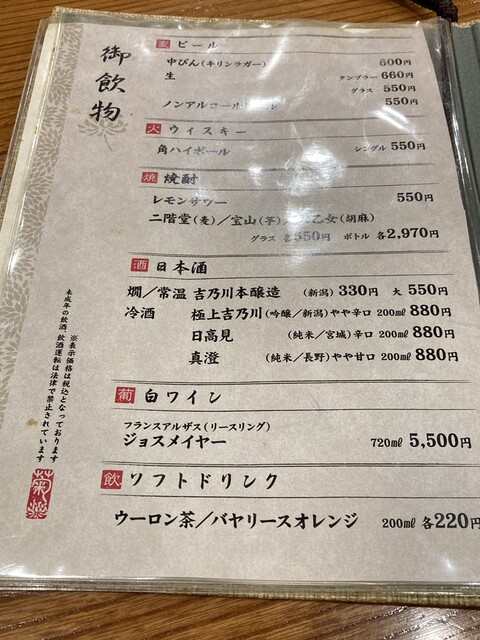 御飲物
麦 ビール
中びん(キリンラガー) 600円
生 タンブラー 660円
グラス 550円
ノンアルコールビール 550円
火 ウィスキー
角ハイボール シングル 550円
焼 焼酎
レモンサワー 550円
二階堂(麦)/宝山(芋) 乙女(胡麻)
グラス 各550円 ボトル 各2,970円
酒 日本酒
燗/常温 吉乃川本醸造 (新潟) 330円 大 550円
冷酒 極上吉乃川(吟醸/新潟)やや辛口 200㎖ 880円
日高見 (純米/宮城)辛口 200㎖ 880円
真澄 (純米/長野)やや甘口 200㎖ 880円
葡 白ワイン
フランスアルザス(リースリング)
ジョスメイヤー 720㎖ 5,500円
飲 ソフトドリンク
ウーロン茶/バヤリースオレンジ 200㎖ 各220円
※表示価格は税込となっております
未成年の飲酒、飲酒運転は法律で禁止されています